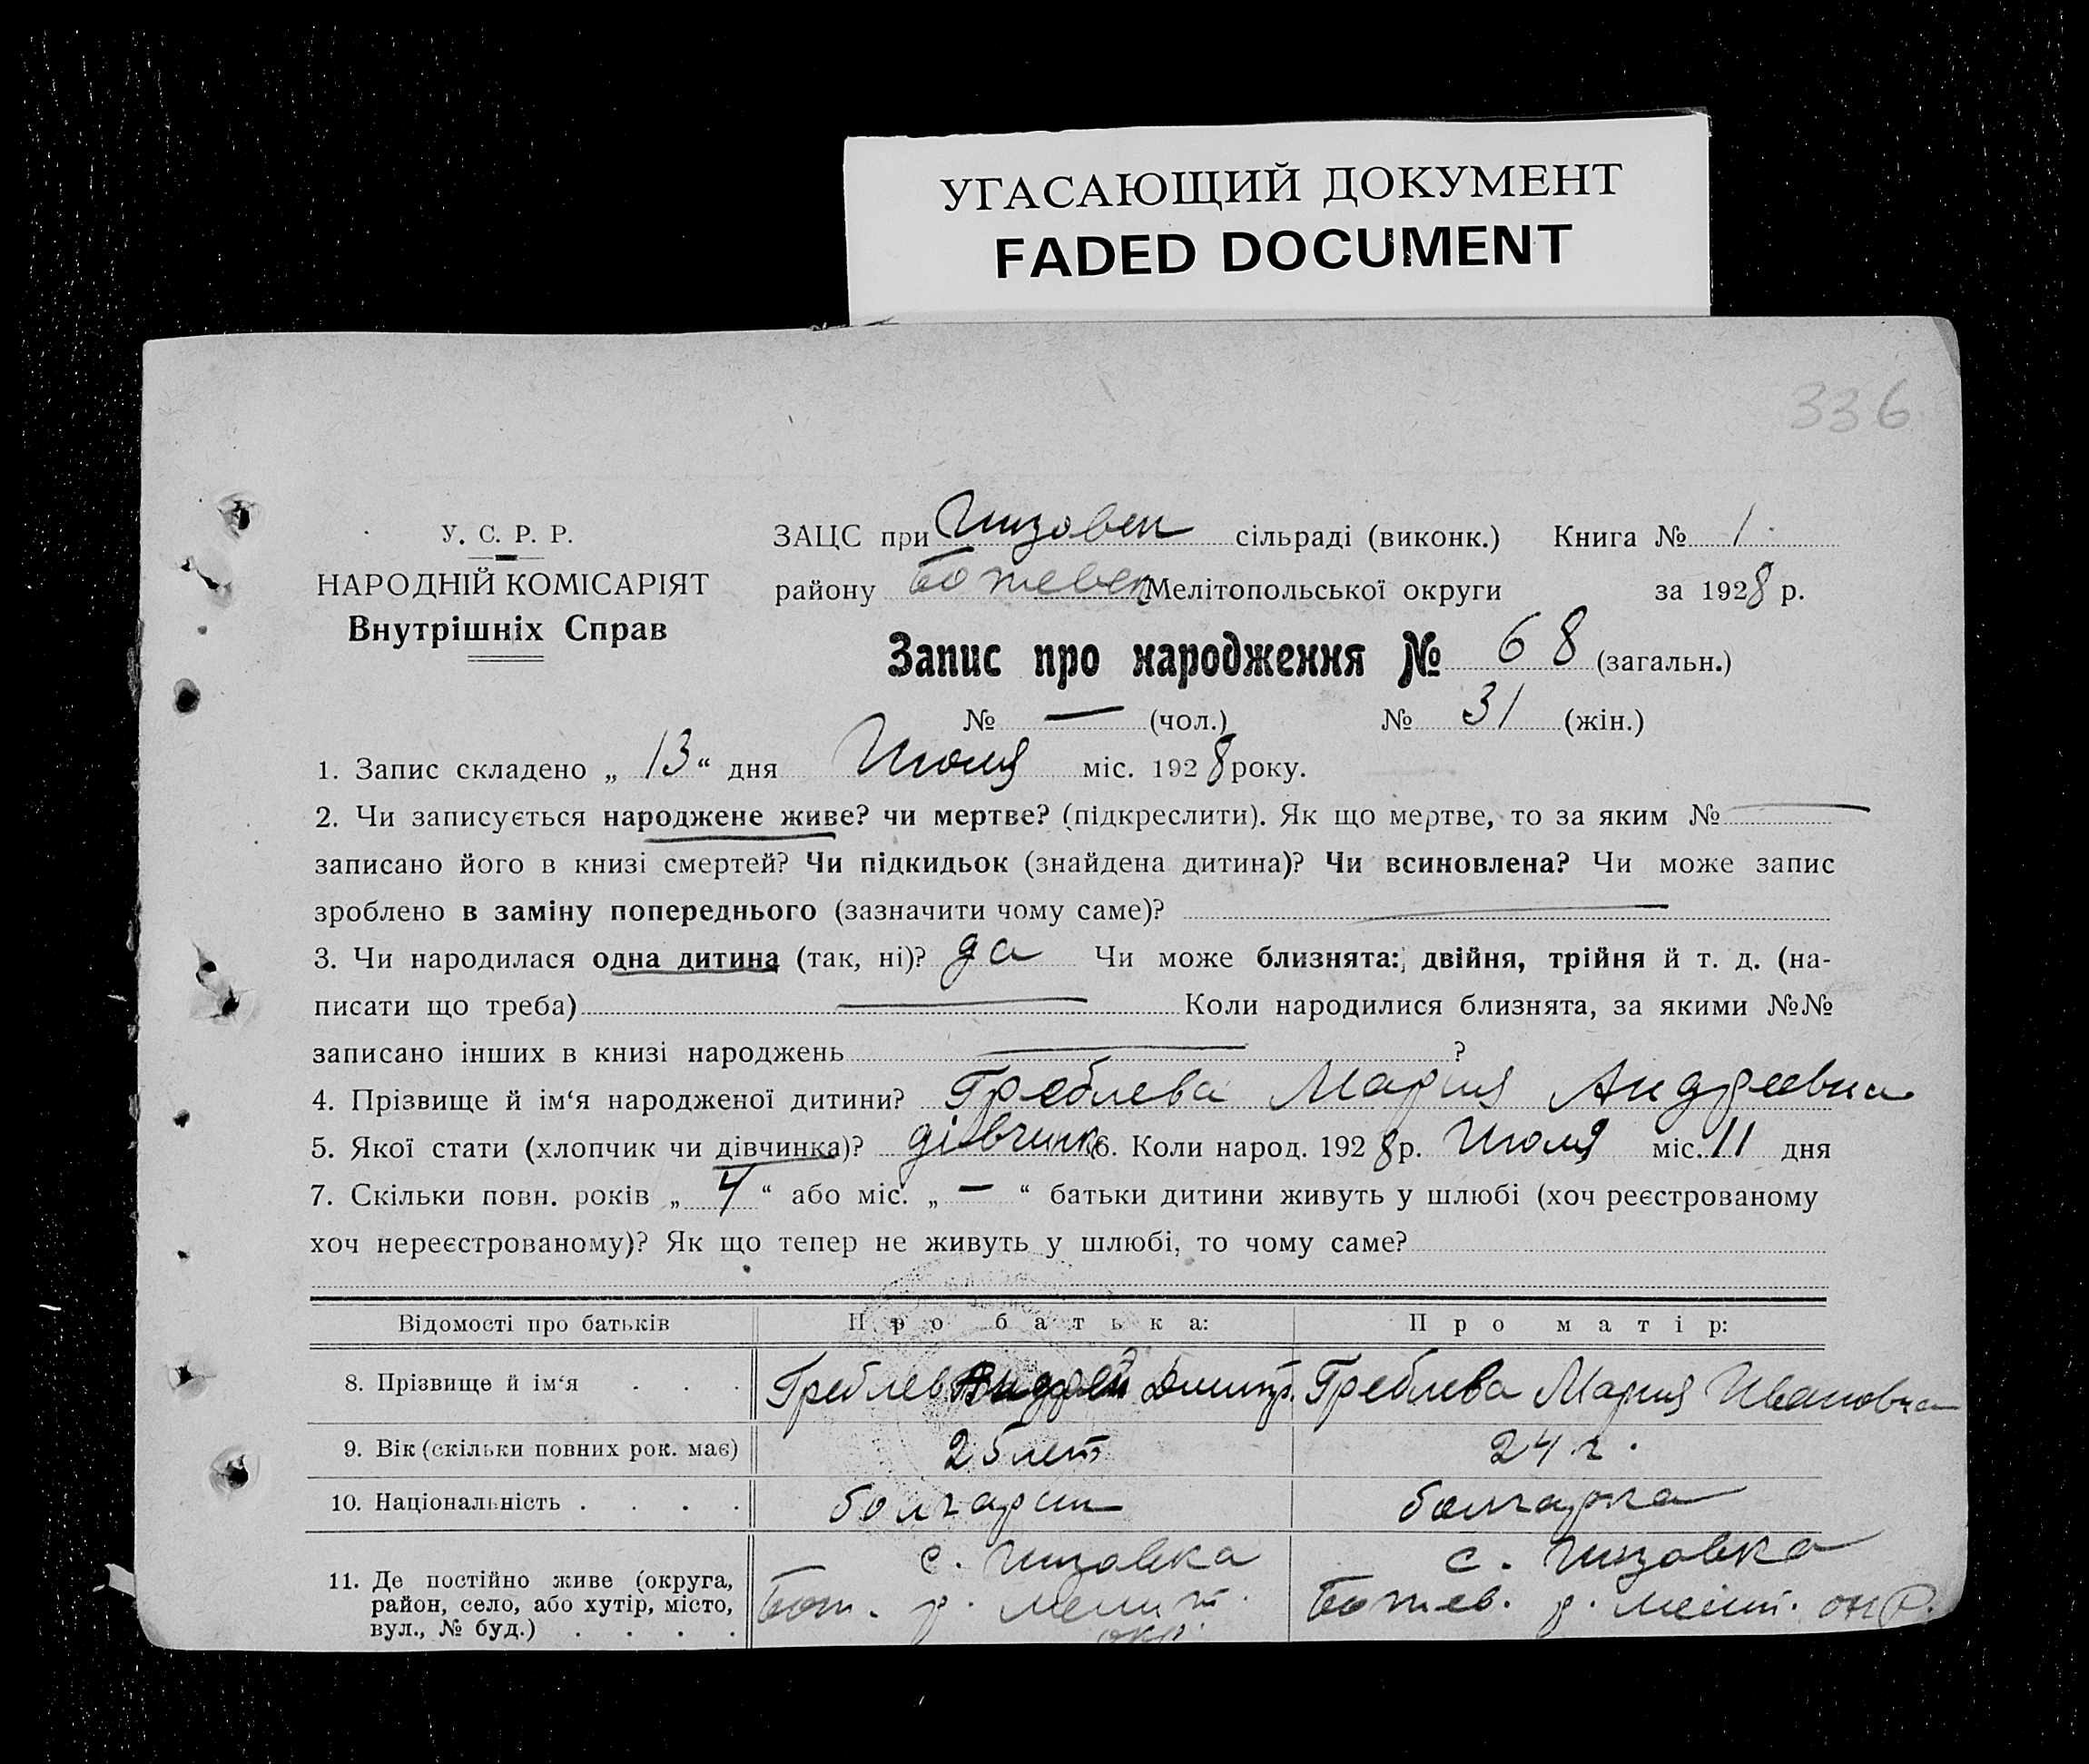 УГАСАЮЩИЙ ДОКУМЕНТ
FADED DOCUMENT
336
У. С. Р. Р.
НАРОДНІЙ КОМІСАРІЯТ
Внутрішніх Справ
ЗАЦС при Гизовск сільраді (виконк.) Книга № 1
району Ботиевск Мелітопольської округи за 1928 р.
Запис про народження № 68 (загальн.)
№ — (чол.) № 31 (жін.)
1. Запис складено „ 13 “ дня Июля міс. 1928 року.
2. Чи записується народжене живе? чи мертве? (підкреслити). Як що мертве, то за яким № —
записано його в книзі смертей? Чи підкидьок (знайдена дитина)? Чи всиновлена? Чи може запис
зроблено в заміну попереднього (зазначити чому саме)? —
3. Чи народилася одна дитина (так, ні)? да Чи може близнята: двійня, трійня й т. д. (на-
писати що треба) — Коли народилися близнята, за якими №№
записано інших в книзі народжень — ?
4. Прізвище й ім‘я народженої дитини? Греблева Мария Андреевна
5. Якої стати (хлопчик чи дівчинка)? дівчинка 6. Коли народ. 1928 р. Июля міс. 11 дня
7. Скільки повн. років „ 4 “ або міс. „ — “ батьки дитини живуть у шлюбі (хоч реєстрованому
хоч нереєстрованому)? Як що тепер не живуть у шлюбі, то чому саме?
Відомості про батьків Про батька: Про матір:
8. Прізвище й ім‘я . . . Греблев Андрей Дмитр. Греблева Мария Ивановна
9. Вік (скільки повних рок. має) 25 лет 24 г.
10. Національність . . . . болгарин болгарка
11. Де постійно живе (округа, с. Гизовка с. Гизовка
район, село, або хутір, місто, Бот. р. Мелит. Ботиев. р. Мелит. окр.
вул., № буд.) . . . . окр.